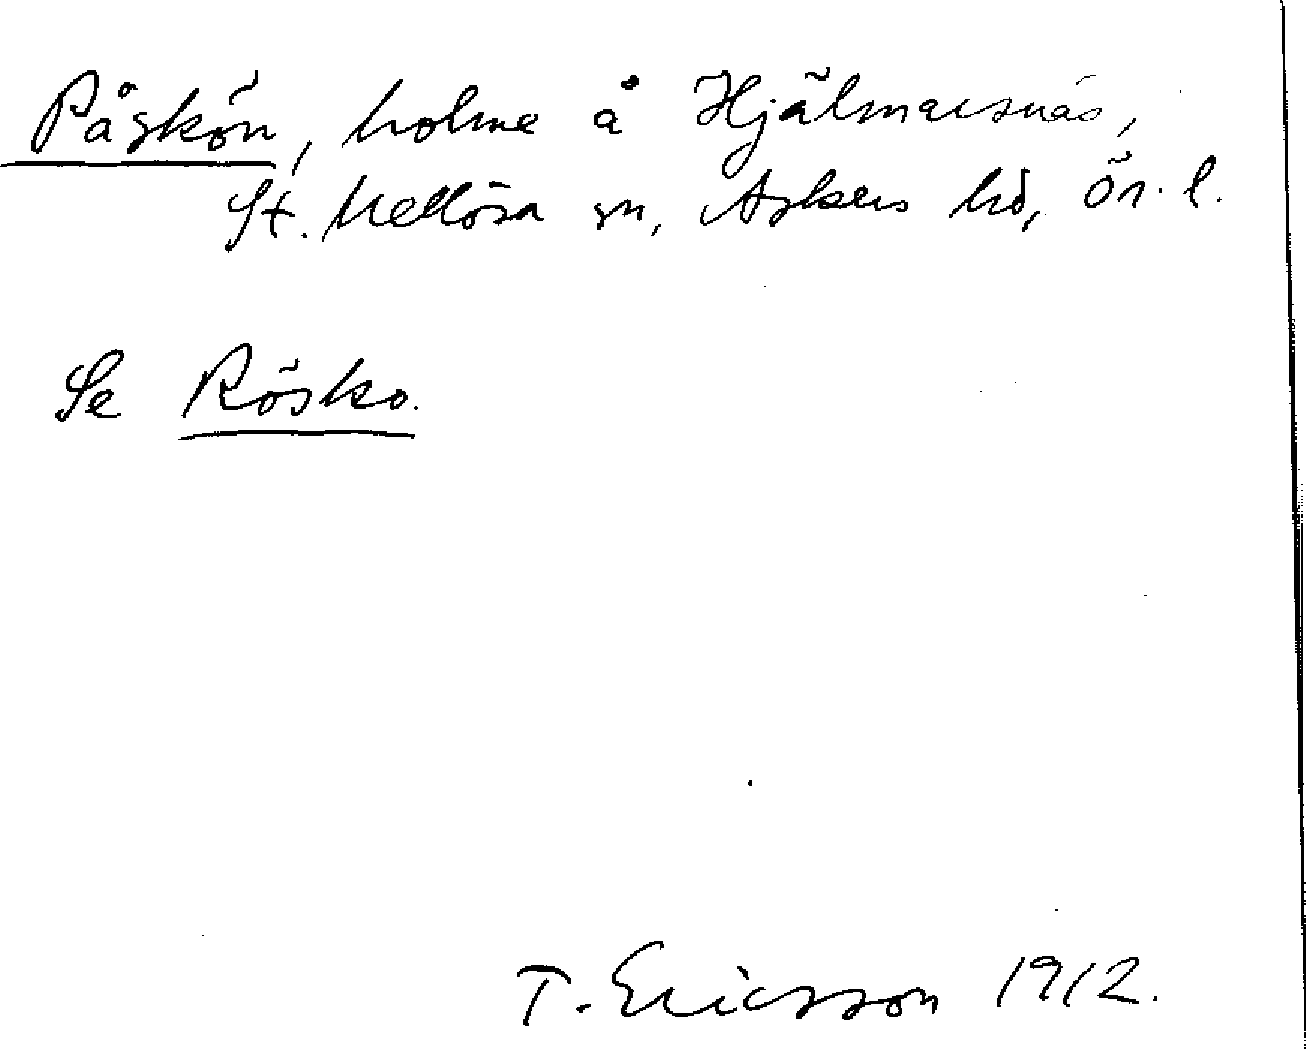 Påskön, holme å Hjälmarsnäs,
St. Mellösa sn, Askers hd, Ör. l.
Se Rösko.
T. Ericsson 1912.